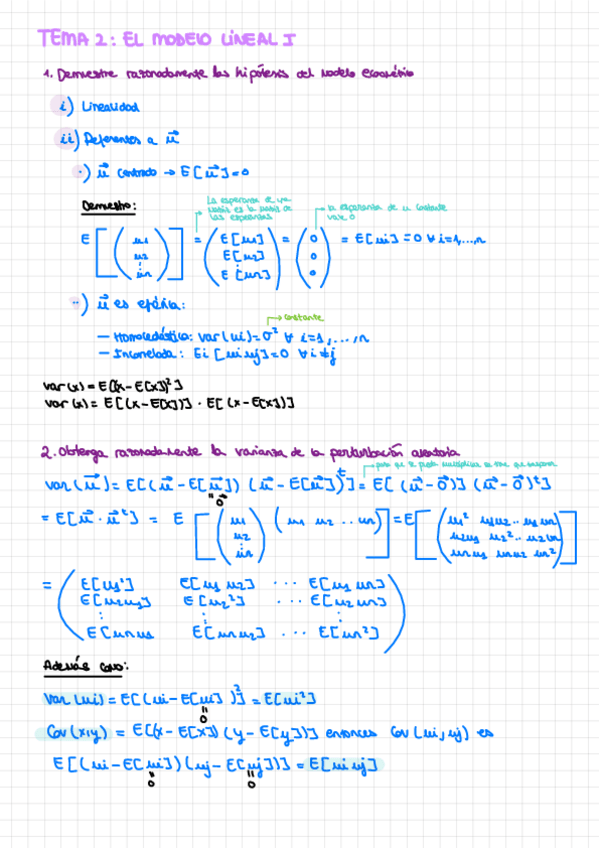 TEMA 2: EL MODELO LINEAL I
1. Demuestre razonadamente las hipótesis del modelo econométrico
i) Linealidad
ii) Referentes a u⃗
·) u⃗ centrado → E[u⃗]=0
Demuestro:
La esperanza de una
matriz es la matriz de
las esperanzas
la esperanza de u constante
vale 0
E[(u1 u2 ⋮ un)] = (E[u1] E[u2] ⋮ E[un]) = (0 0 0) = E[ui] = 0 ∀ i=1,...,n
··) u⃗ es esférica:
constante
— Homocedástica: var(ui)=σ² ∀ i=1,...,n
— Incorrelada: Ei[ui uj]=0 ∀ i≠j
var(x) = E[(x-E[x])²]
var(x) = E[(x-E[x])] · E[(x-E[x])]
2. Obtenga razonadamente la varianza de la perturbación aleatoria
para que se pueda multiplicar se tiene que trasponer
var(u⃗) = E[(u⃗-E[u⃗]) (u⃗-E[u⃗])ᵗ] = E[(u⃗-0⃗)] (u⃗-0⃗)ᵗ]
"
0⃗
= E[u⃗·u⃗ᵗ] = E[(u1 u2 ⋮ un) (u1 u2 .. un)] = E[(u1² u1u2 .. u1un u2u1 u2² .. u2un unu1 unu2 un²)]
= (E[u1²] E[u1u2] ··· E[u1un]
E[u2u1] E[u2²] ··· E[u2un]
⋮ ⋮ ⋮
E[unu1 E[unu2] ··· E[un²])
Además como:
var(ui) = E[(ui-E[ui])²] = E[ui²]
"
0
Cov(x,y) = E[(x-E[x])(y-E[y])] entonces Cov(ui,uj) es
E[(ui-E[ui])(uj-E[uj])] = E[ui uj]
" "
0 0